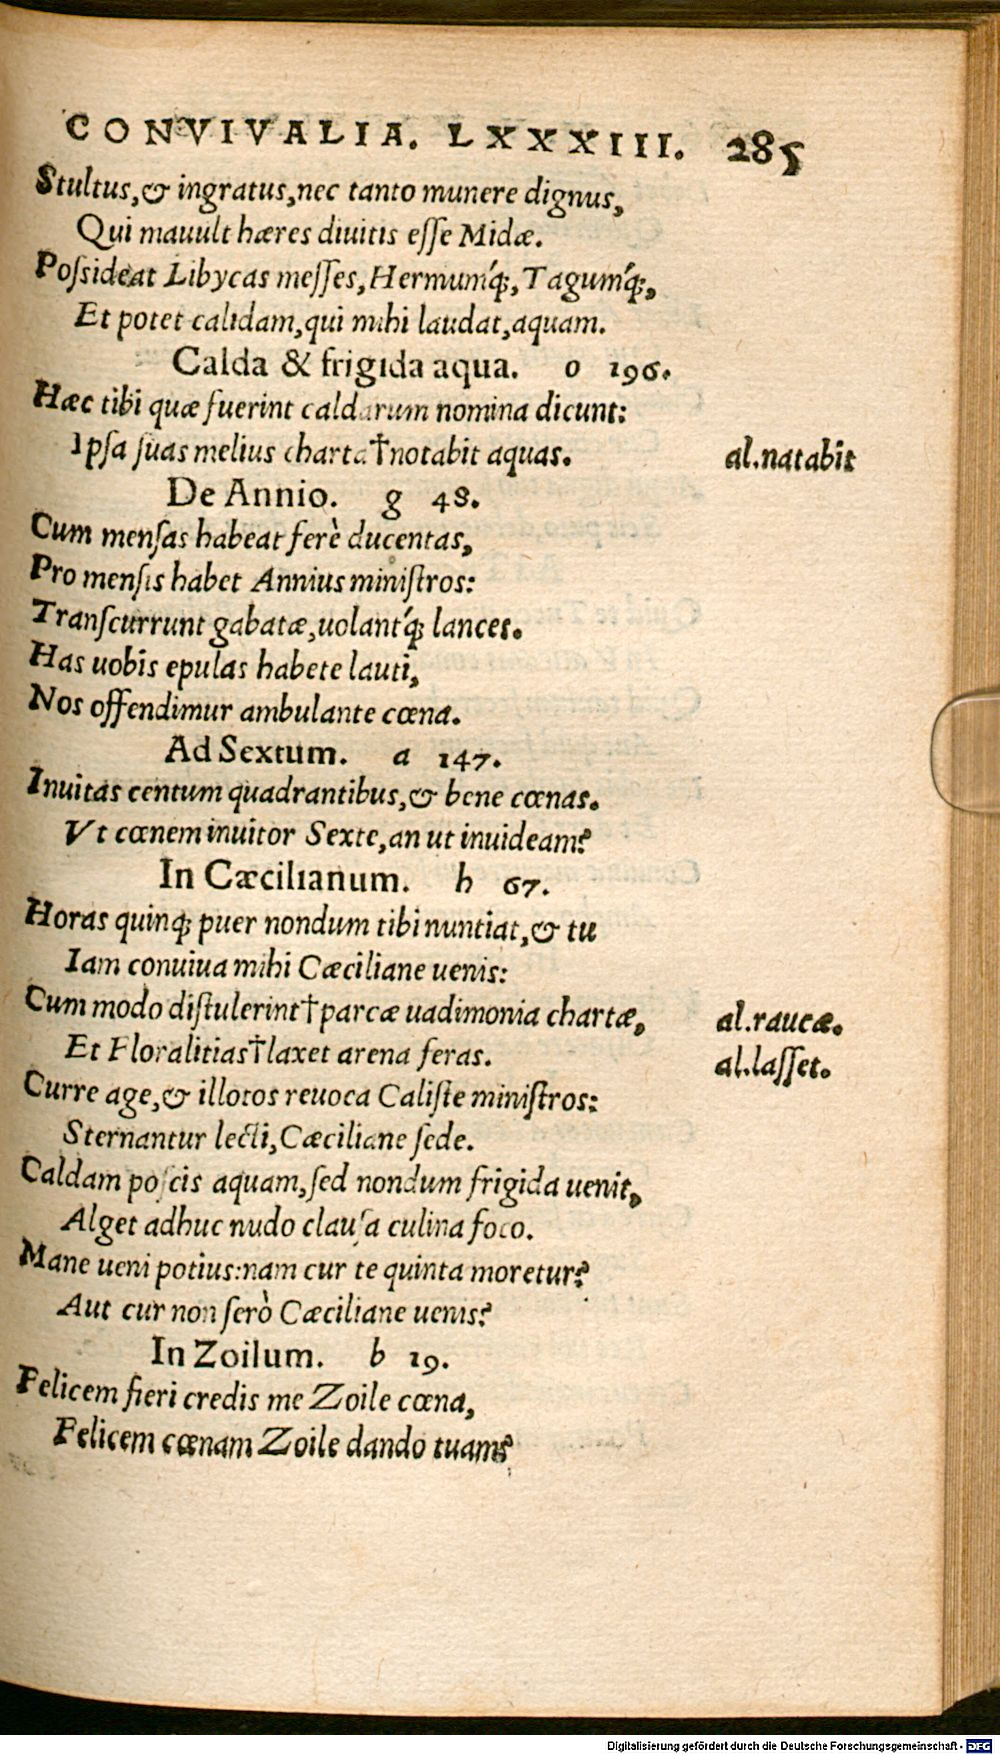 CONVIVALIA. LXXXIII. 285
Stultus, & ingratus, nec tanto munere dignus,
Qui mauult hæres diuitis eſſe Midæ.
Poſsideat Libycas meſſes, Hermumq́;, Tagumq́;,
Et potet calidam, qui mihi laudat, aquam.
Calda & frigida aqua. o 196.
Hæc tibi quæ fuerint caldarum nomina dicunt:
Ipſa ſuas melius charta†notabit aquas. al.natabit
De Annio. g 48.
Cum menſas habeat ferè ducentas,
Pro menſis habet Annius miniſtros:
Tranſcurrunt gabatæ, uolantq́; lances.
Has uobis epulas habete lauti,
Nos offendimur ambulante cœna.
Ad Sextum. a 147.
Inuitas centum quadrantibus, & bene cœnas.
Vt cœnem inuitor Sexte, an ut inuideam?
In Cæcilianum. h 67.
Horas quinq; puer nondum tibi nuntiat, & tu
Iam conuiua mihi Cæciliane uenis:
Cum modo diſtulerint†parcæ uadimonia chartæ, al.raucæ.
Et Floralitias†laxet arena feras. al.laſſet.
Curre age, & illotos reuoca Caliſte miniſtros:
Sternantur lecti, Cæciliane ſede.
Caldam poſcis aquam, ſed nondum frigida uenit,
Alget adhuc nudo clauſa culina foco.
Mane ueni potius: nam cur te quinta moretur?
Aut cur non ſerò Cæciliane uenis?
In Zoilum. b 19.
Felicem fieri credis me Zoile cœna,
Felicem cœnam Zoile dando tuam?
Digitalisierung gefördert durch die Deutsche Forschungsgemeinschaft - DFG